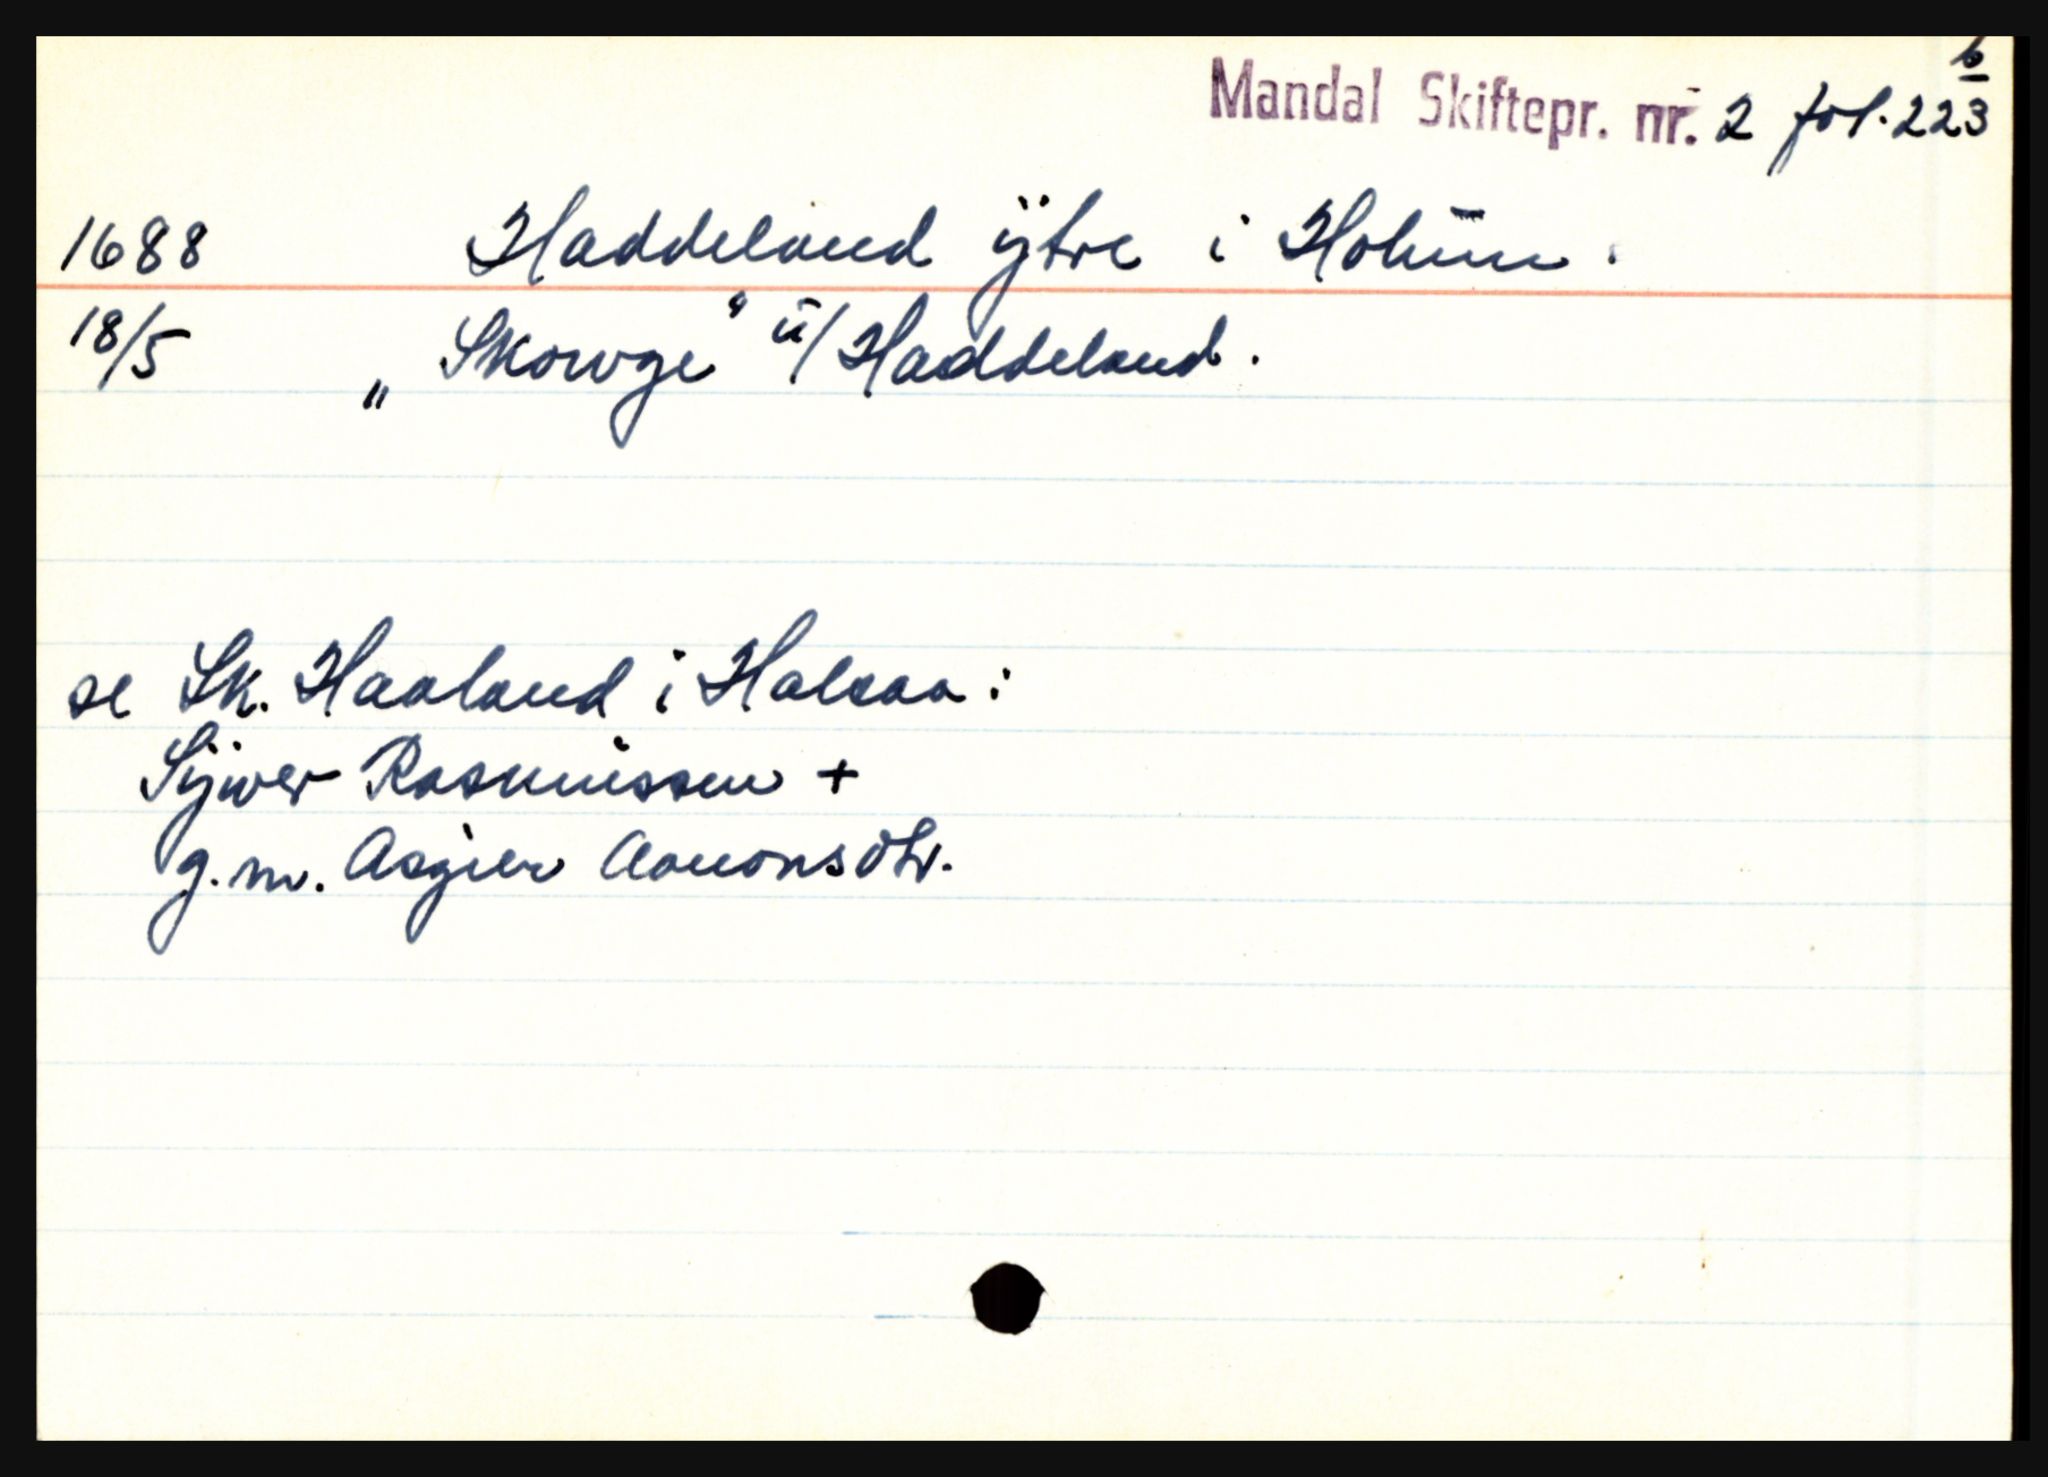 b
Mandal Skiftepr. nr. 2 fol. 223
1688 Haddeland ÿtre i Holum.
18/5 „Skowge“ u/Haddeland.
se Sk. Haaland i Halsaa:
Sijwer Rasmussen +
g.m. Asgier Aanonsdtr.